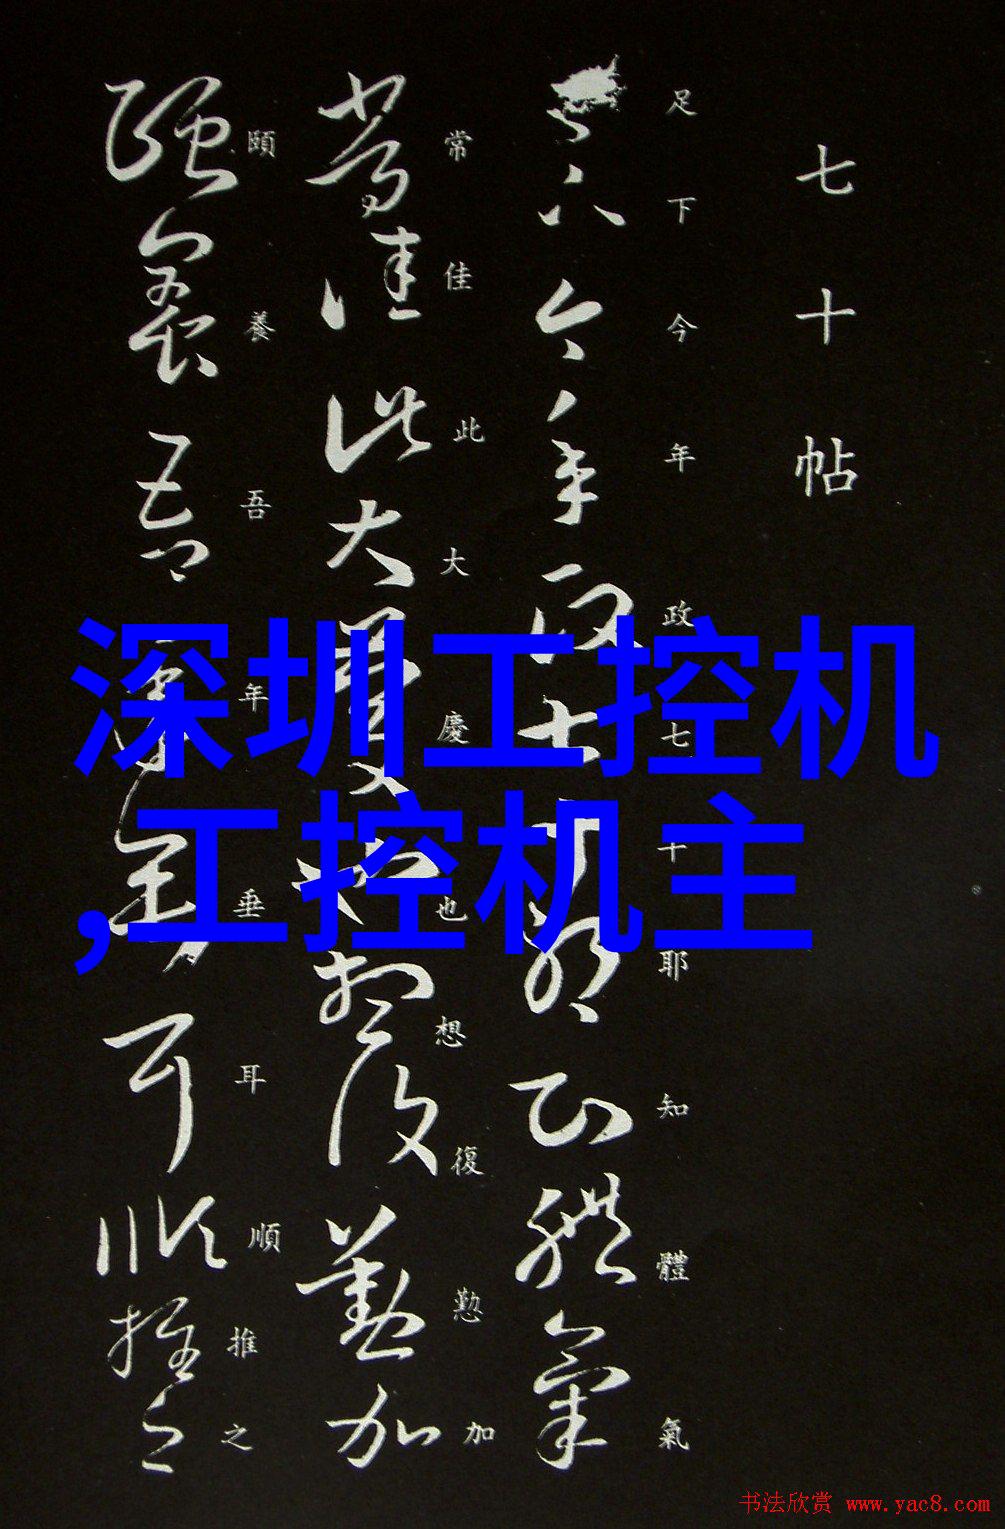 七十帖
足下今年政七十耶知體氣
常佳此大慶也想復懃加
頤養吾年垂耳順推之
深圳工控机
,工控机主
书法欣赏 www.yac8.com